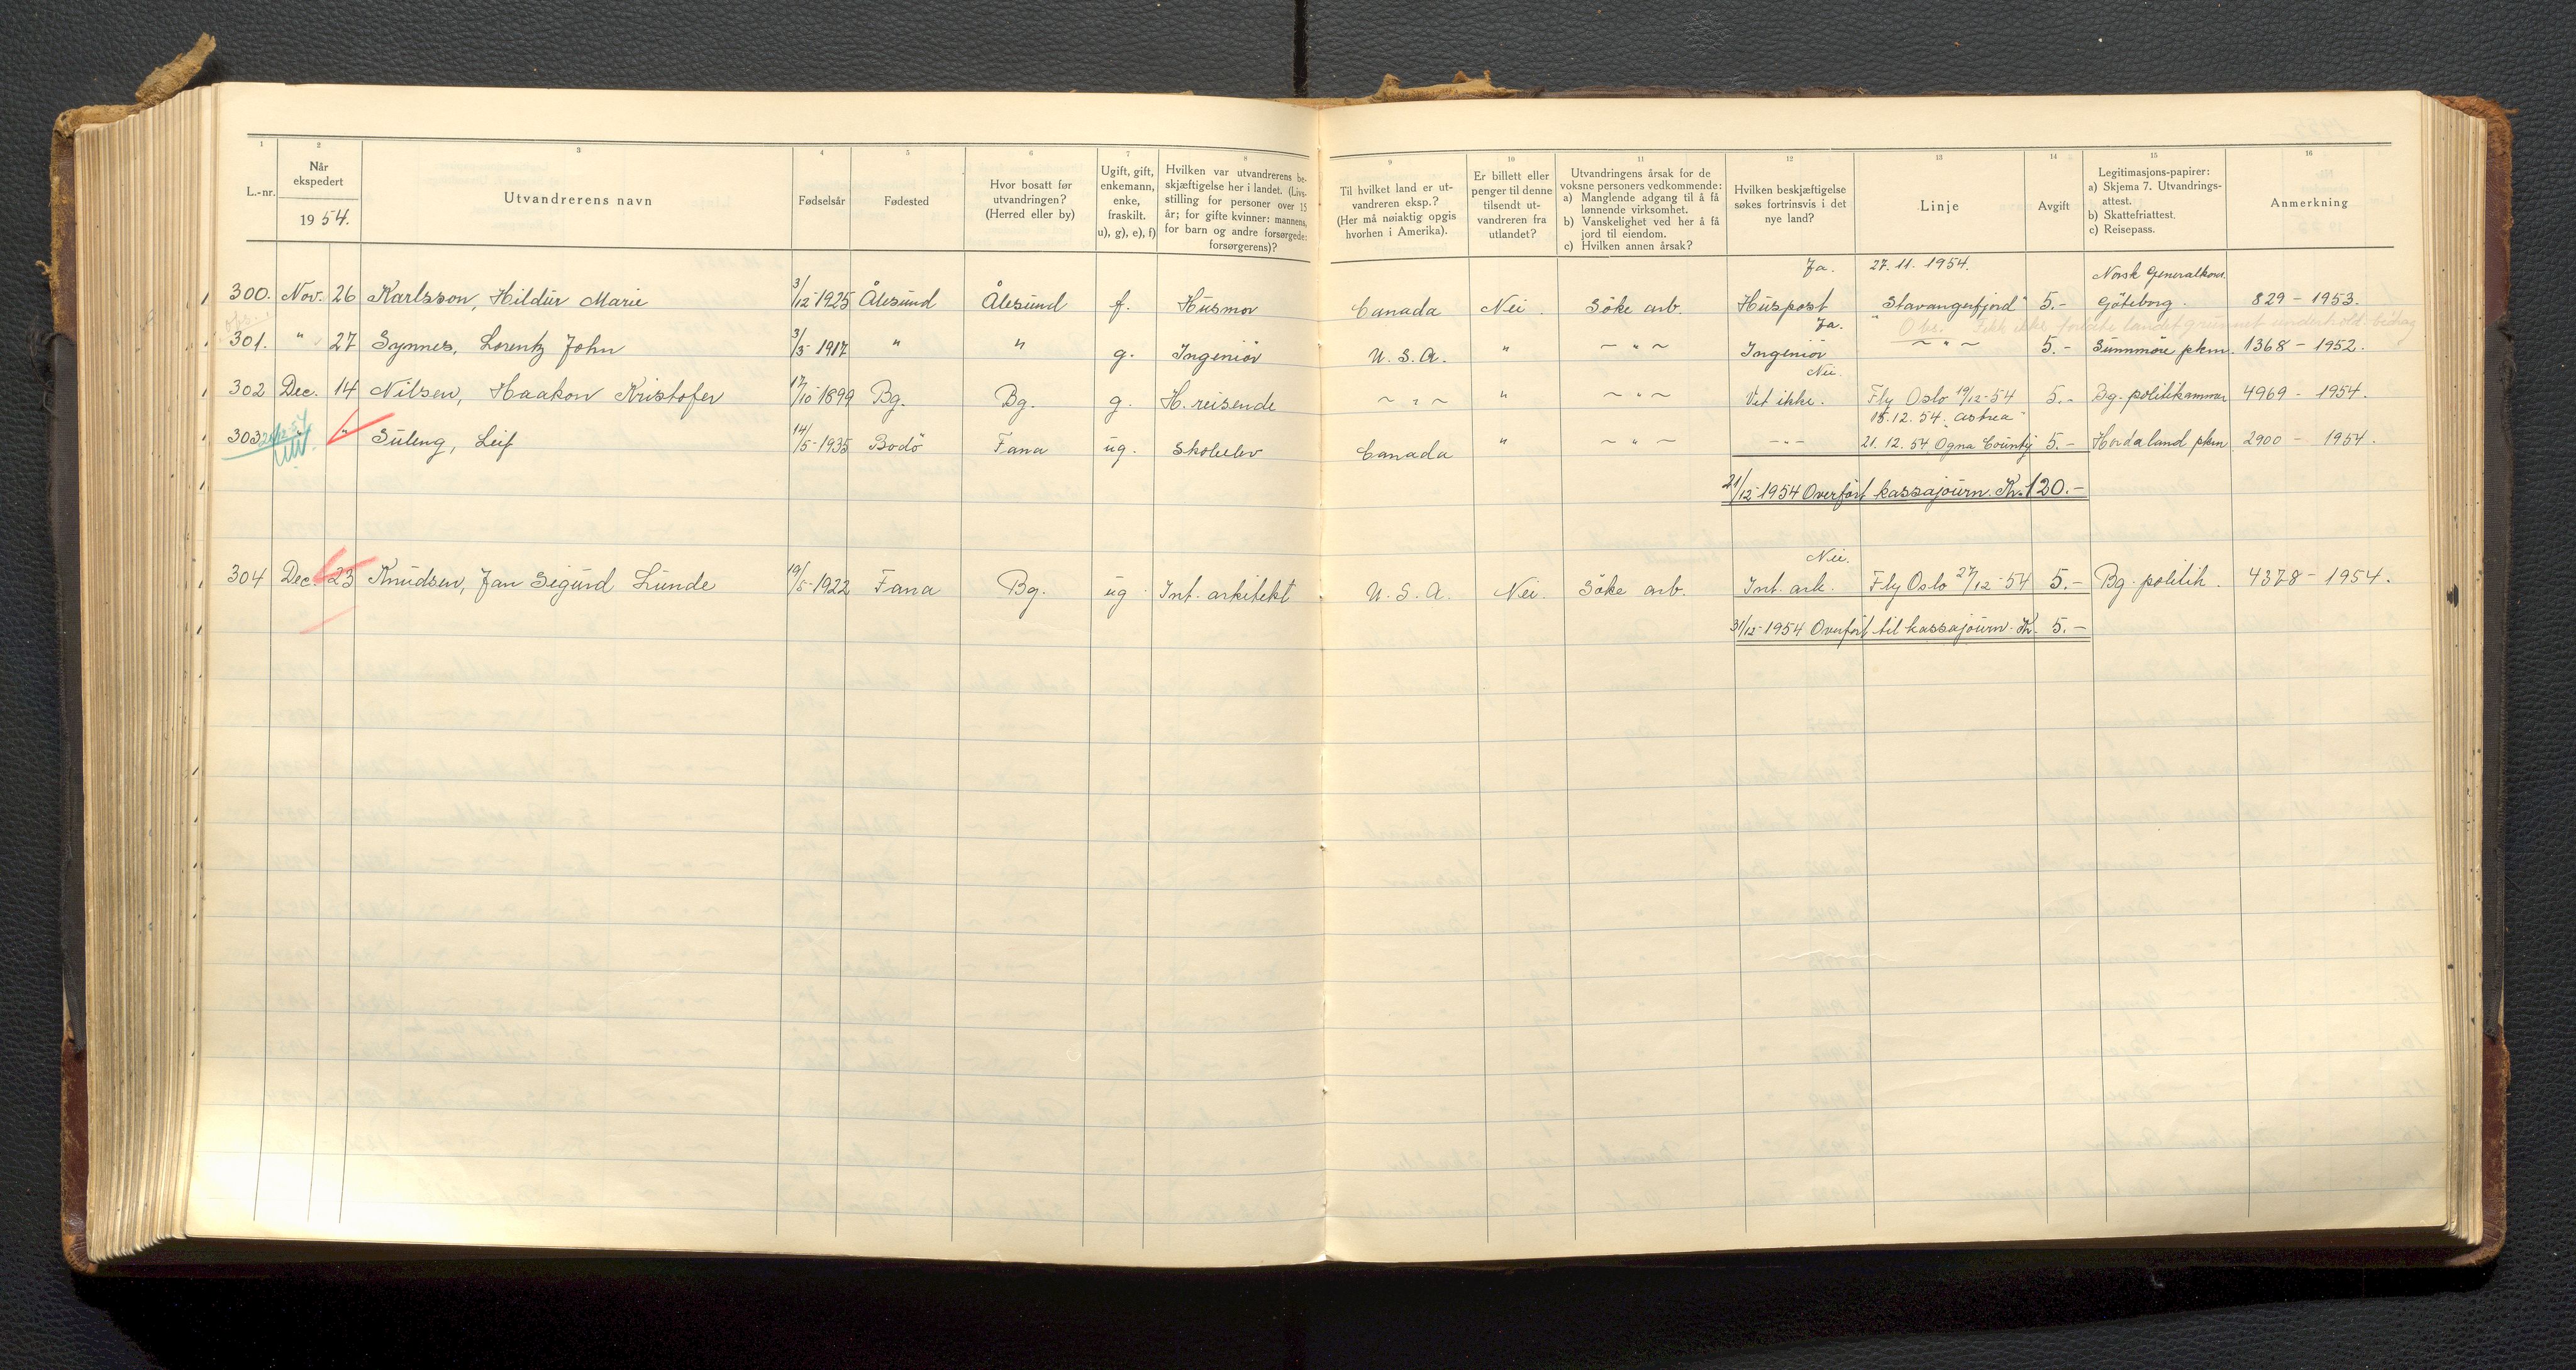 1 2 3 4 5 6 7 8 9 10 11 12 13 14 15 16
L.-nr.
Når
ekspedert
1954.
Utvandrerens navn
Fødselsår
Fødested
Hvor bosatt før
utvandringen?
(Herred eller by)
Ugift, gift,
enkemann,
enke,
fraskilt.
u), g), e), f)
Hvilken var utvandrerens be-
skjæftigelse her i landet. (Livs-
stilling for personer over 15
år; for gifte kvinner: mannens,
for barn og andre forsørgede:
forsørgerens)?
Til hvilket land er ut-
vandreren eksp.?
(Her må nøiaktig opgis
hvorhen i Amerika).
Er billett eller
penger til denne
tilsendt ut-
vandreren fra
utlandet?
Utvandringens årsak for de
voksne personers vedkommende:
a) Manglende adgang til å få
lønnende virksomhet.
b) Vanskelighet ved her å få
jord til eiendom.
c) Hvilken annen årsak?
Hvilken beskjæftigelse
søkes fortrinsvis i det
nye land?
Linje
Avgift
Legitimasjons-papirer:
a) Skjema 7. Utvandrings-
attest.
b) Skattefriattest.
c) Reisepass.
Anmerkning
Ja. 27.11.1954. Norsk Generalkons.
300. Nov. 26 Karlsson, Hildur Marie 3/12-1925 Ålesund Ålesund f. Husmor Canada Nei. Söke arb. Huspost "Stavangerfjord" 5.- Göteborg. 829 - 1953.
Ja. Obs. Fikk ikke forlate landet grunnet underh old. bidrag
301. " 27 Synnes, Lorentz John 3/3-1917 " " g. Ingeniör U.S.A. " ~ " ~ Ingeniör ~ " ~ 5.- Sunnmöre pkm. 1368 - 1952.
Nei.
302 Dec. 14 Nilsen, Haakon Kristofer 17/10-1899 Bg. Bg. g. H. reisende ~ " ~ " ~ " ~ Vet ikke. Fly Oslo 19/12-54 5.- Bg. politikammer 4969 - 1954.
18.12.54. Astrea
303 " Suleng, Leif 14/5-1935 Bodö Fana ug. Skoleelev Canada " ~ " ~ - " - 21.12.54 Ogna County 5.- Hordaland pkm 2900 - 1954.
21/12-1954 Overfört kassajourn. Kr. 120.-
Nei.
304 Dec. 23 Knudsen, Jan Sigurd Lunde 19/5-1922 Fana Bg. ug Int. arkitekt U.S.A. Nei. Söke arb. Int. ark. Fly Oslo 27/12-54 5.- Bg. politik. 4378 - 1954.
31/12-1954 Overfört til kassajourn. Kr. 5.-